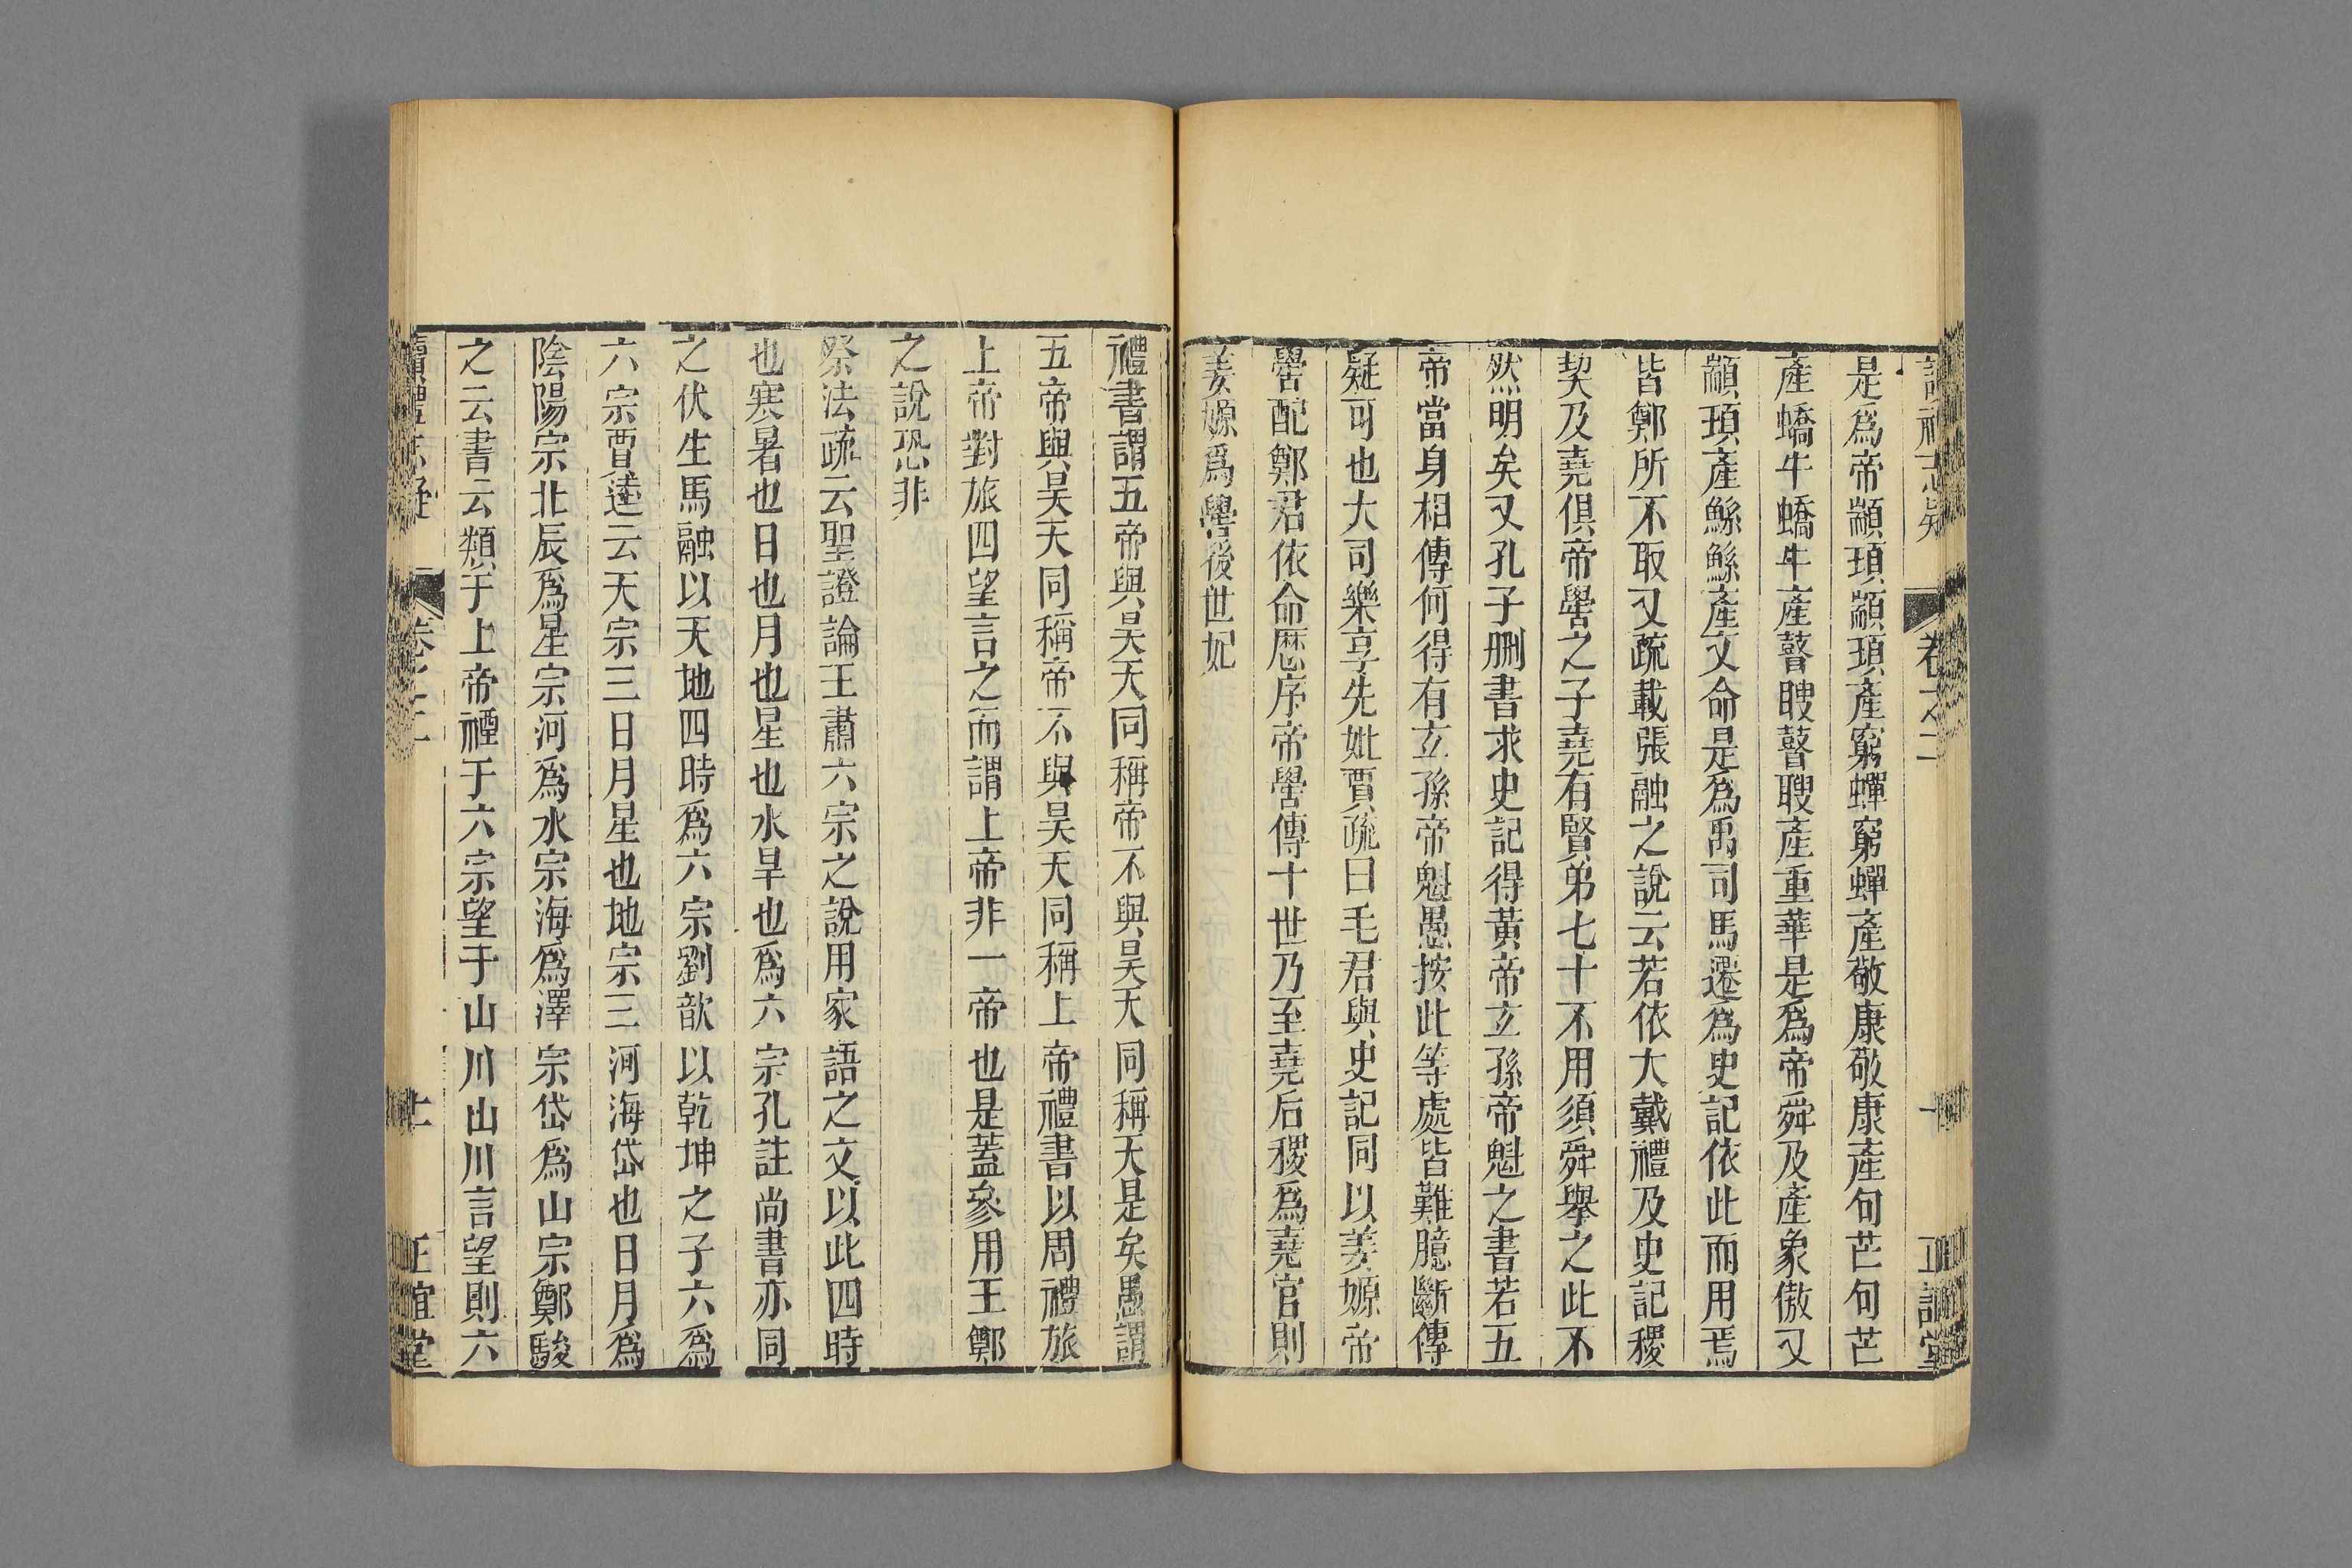 讀禮志疑 卷之二 十 正誼堂
是爲帝顓頊顓頊產窮蟬窮蟬產敬康敬康產句芒句芒
產蟜牛蟜牛產瞽瞍瞽瞍產重華是爲帝舜及產象傲又
顓頊產鯀鯀產文命是爲禹司馬遷爲史記依此而用焉
皆鄭所不取又疏載張融之說云若依大戴禮及史記稷
契及堯俱帝嚳之子堯有賢弟七十不用須舜舉之此不
然明矣又孔子刪書求史記得黃帝玄孫帝魁之書若五
帝當身相傳何得有玄孫帝魁愚按此等處皆難臆斷傳
疑可也大司樂享先妣賈疏曰毛君與史記同以姜嫄帝
嚳配鄭君依命厯序帝嚳傳十世乃至堯后稷爲堯官則
姜嫄爲嚳後世妃
禮書謂五帝與昊天同稱帝不與昊天同稱天是矣愚謂
五帝與昊天同稱帝不與昊天同稱上帝禮書以周禮旅
上帝對旅四望言之而謂上帝非一帝也是蓋參用王鄭
之說恐非
祭法疏云聖證論王肅六宗之說用家語之文以此四時
也寒暑也日也月也星也水旱也爲六宗孔註尚書亦同
之伏生馬融以天地四時爲六宗劉歆以乾坤之子六爲
六宗賈逵云天宗三日月星也地宗三河海岱也日月爲
陰陽宗北辰爲星宗河爲水宗海爲澤宗岱爲山宗鄭駿
之云書云類于上帝禋于六宗望于山川山川言望則六
讀禮志疑 卷之二 十一 正誼堂